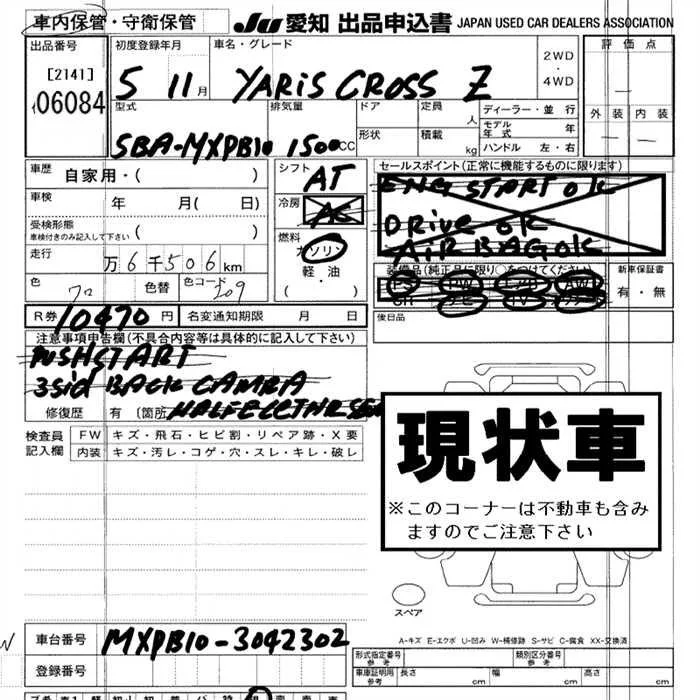 車内保管・守衛保管
JU 愛知 出品申込書 JAPAN USED CAR DEALERS ASSOCIATION
出品番号
[2141]
06084
初度登録年月
5 11月
車名・グレード
YARIS CROSS Z
2WD
・
4WD
評価点
外装 内装
型式
5BA-MXPB10
排気量
1500CC
ドア
定員
人
形状
積載
kg
ディーラー・並行
モデル年式 年
ハンドル 左・右
車歴
自家用・( )
車検
年 月( 日)
受検形態
車検付きのみ記入して下さい ( )
走行
万6千506km
色
クロ
色替
色コード
209
シフト
AT
冷房
AC
燃料
ガソリン
軽・油
( )
セールスポイント(正常に機能するものに限ります)
ENG START OK
DRIVE OK
AIR BAG OK
装備品(純正品に限り○をつけてください)
PS PW エアB AW
SR ナビ TV
新車保証書
有・無
後日品
R券 10470 円
名変通知期限 月 日
注意事項申告欄(不具合内容等は具体的に記入して下さい)
PUSH START
3sid BACK CAMRA
修復歴 有 〔箇所
検査員
記入欄
FW キズ・飛石・ヒビ割・リペア跡・X要
内装 キズ・汚レ・コゲ・穴・スレ・キレ・破レ
現状車
※このコーナーは不動車も含み
ますのでご注意下さい
スペア
A-キズ E-エクボ U-凹み W-補修跡 S-サビ C-腐食 XX-交換済
車台番号
MXPB10-3042302
登録番号
形式指定番号
参考
類別区分番号
参考
車庫証明用
参考
長さ cm 幅 cm 高さ cm